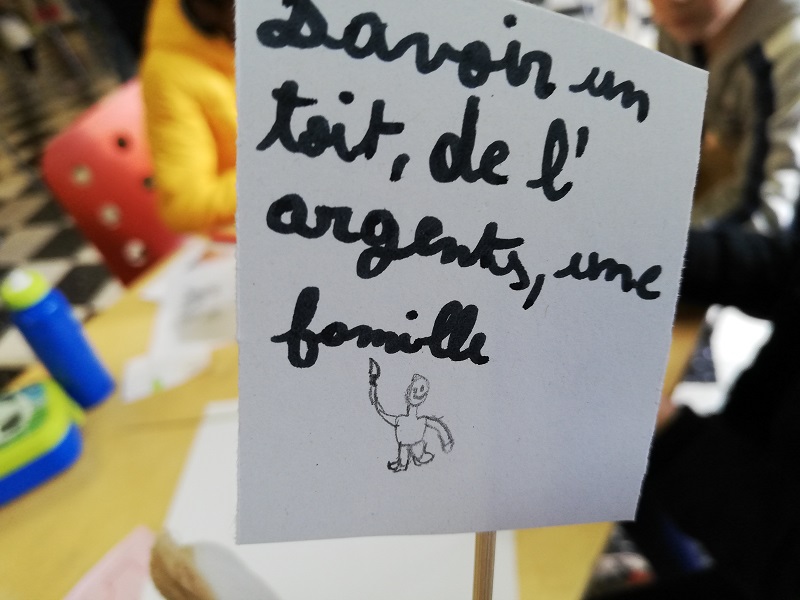 Davoir un
toit, de l'
argents, une
famille